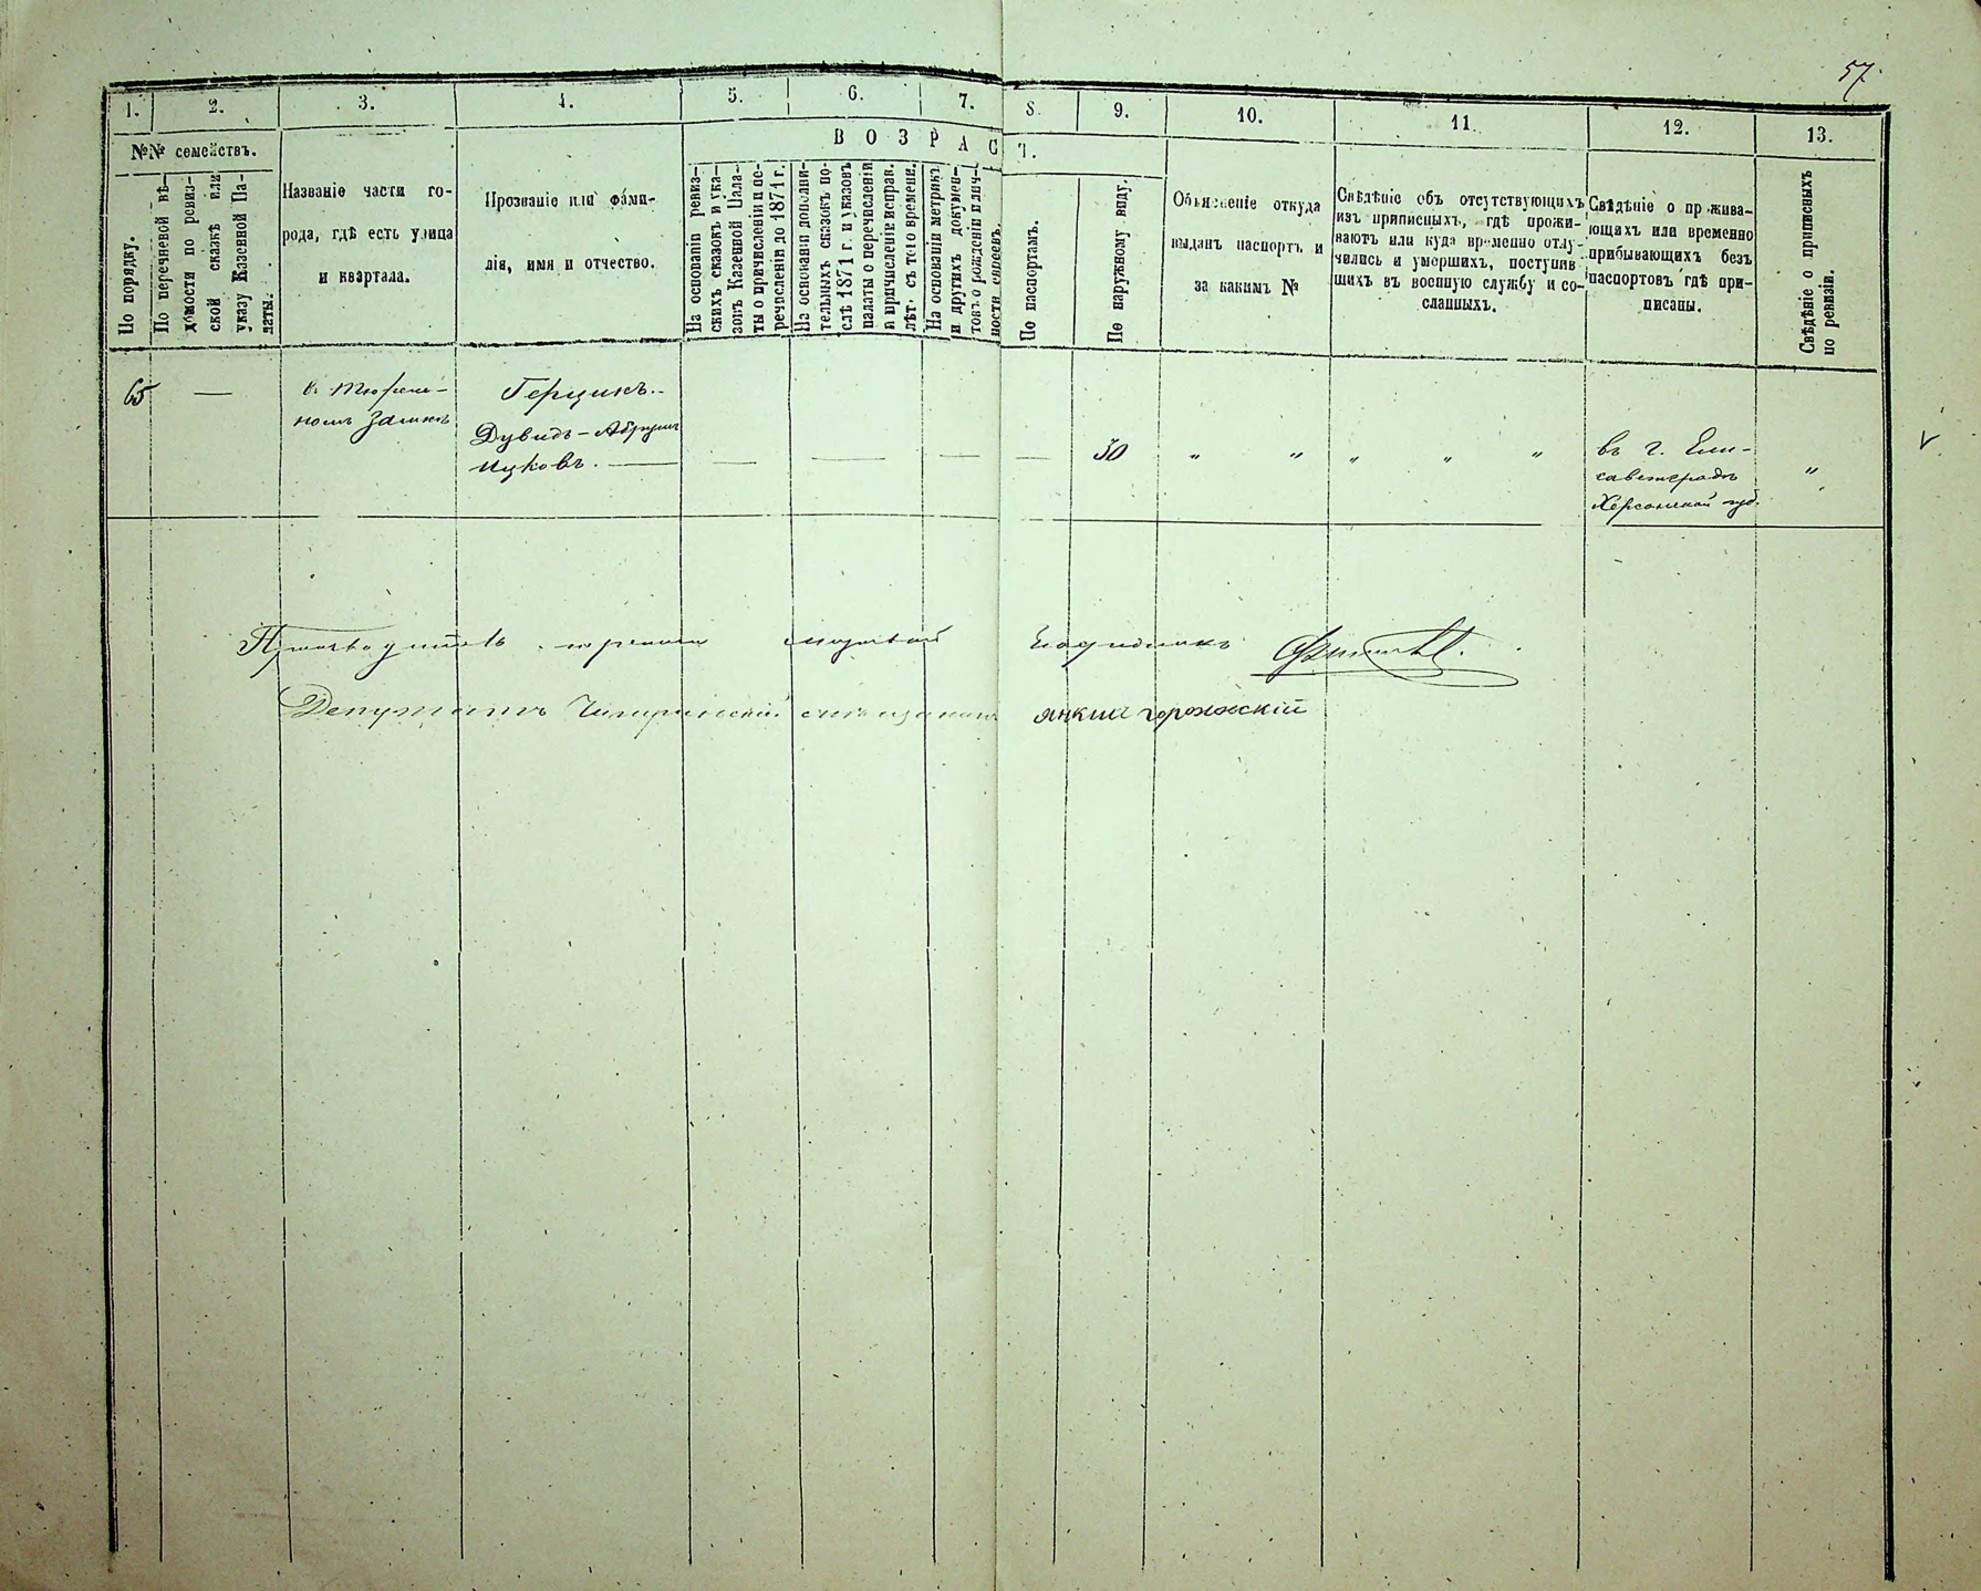 57
1. 2. 3. 4. 5. 6. 7. 8. 9. 10. 11. 12. 13.
№№ семействъ.
По порядку.
По перечневой вѣ-
домости по ревиз-
ской сказкѣ или
указу Казенной Па-
латы.
Названіе части го-
рода, гдѣ есть улица
и квартала.
Прозваніе или фами-
лія, имя и отчество.
ВОЗРАСТ.
На основаніи ревиз-
скихъ сказокъ и ука-
зовъ Казенной Пала-
ты о причисленіи и пе-
речисленіи до 1871 г.
На основаніи дополни-
тельныхъ сказокъ по-
слѣ 1871 г. и указовъ
палаты о перечисленіи
и причисленіе исправ.
лѣт. съ того времени.
На основаніи метрик.
и другихъ докумен-
товъ о рожденіи и лич-
ности евреевъ.
По паспортамъ.
По наружному виду.
Объясненіе откуда
выданъ паспортъ и
за какимъ №
Свѣдѣніе объ отсутствующихъ
изъ приписныхъ, гдѣ прожи-
ваютъ или куда временно отлу-
чились и умершихъ, поступив-
шихъ въ военную службу и со-
сланныхъ.
Свѣдѣніе о прожива-
ющихъ или временно
прибывающихъ безъ
паспортовъ гдѣ при-
писаны.
Свѣдѣніе о приписныхъ
по ревизіи.
65 —
в. Тюрем-
номъ Замкѣ
Герцикъ.
Дувидъ-Абрумъ
Ицковъ. — — — — —
30 " " " " "
въ г. Ели-
саветградѣ
Херсонской губ.
"
Депутатъ Чигиринскій мѣщанинъ Янкиль Горожскій